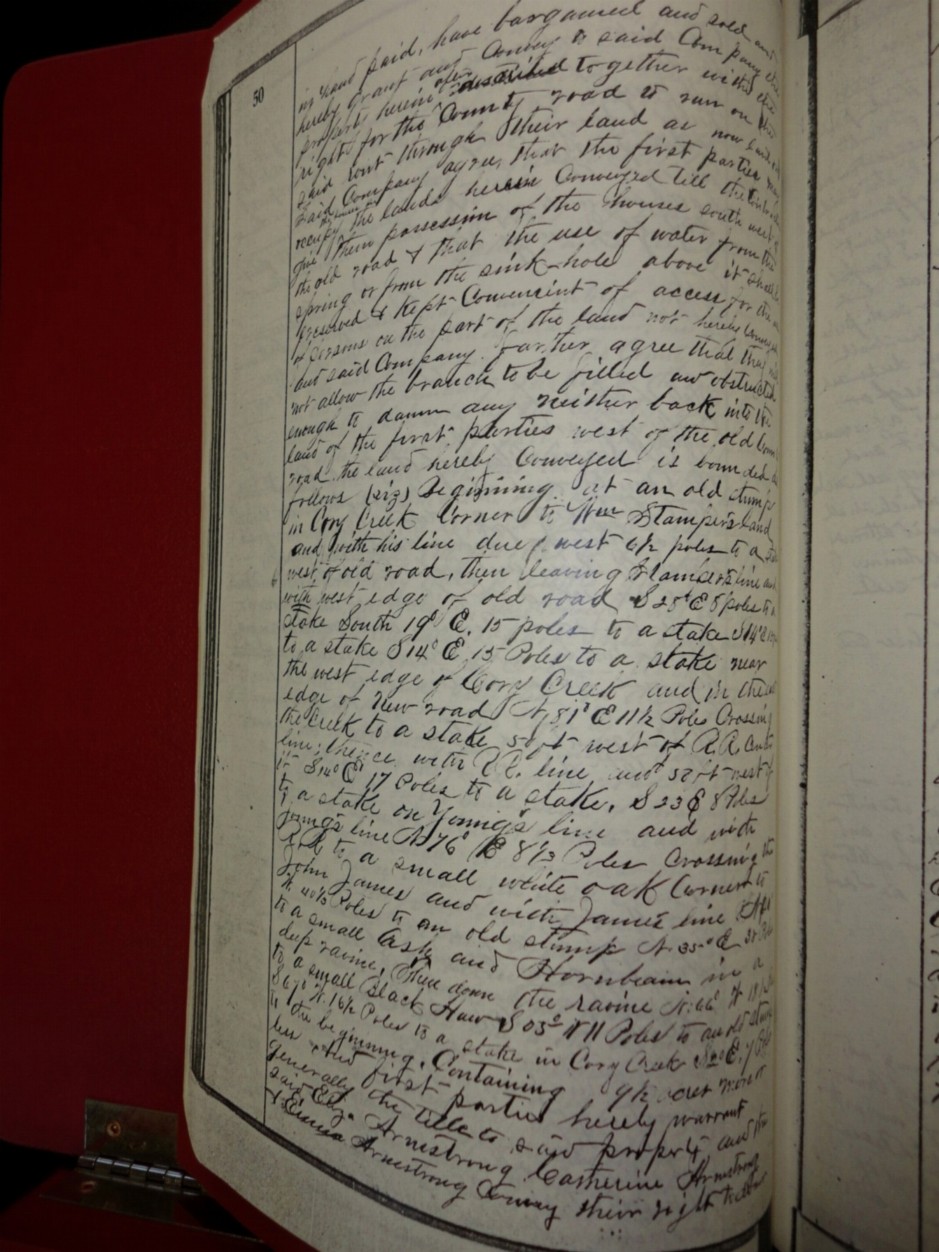 50
in hand paid, have bargained and sold and
hereby grant and Convey to said Company the
property herein after described together with the
right for the County road to run on the
said through their land as now
said Company agree, that the first parties may
occupy the lands herein Conveyed till the
give them possession of the houses south west of
the old road & that the use of water from the
spring or from the sink-hole above it shall be
reserved & Kept Convenient of access for the
of persons on the part of the land not hereby Conveyed
but said Company further agree that they will
not allow the branch to be filled and obstructed
enough to damm any neither back into the
land of the first parties west of the old
road. the land hereby Conveyed is bounded as
follows (viz) Beginning at an old stump
in Cory Creek Corner to Wm Stampers land
and with his line due west 6½ poles to a
west of old road, then leaving Stampers line and
with west edge of old road S 28° E 8 poles to a
stake South 19° E. 15 poles to a stake S 14° E
to a stake S 14° E. 15 Poles to a stake near
the west edge of Cory Creek and in the
edge of New road N, 81° E 11½ Poles Crossing
the Creek to a stake 50 ft west of R.R. Center
line, thence with R.R. line and 50 ft west of
it S 14° E 17 Poles to a stake, S 23 E 8 Poles
to a stake on Young's line and with
Young's line N 76° E 8⅓ Poles Crossing the
R.R. to a small white oak Corner to
John James and with James line
Poles to an old stump N 35° E 30 Poles
to a small Ash and Hornbeam in a
deep ravine, then down the ravine N. 66° W 18
to a small Black Haw S 03° W 11 Poles to an old stump
S 67° W. 16½ Poles to a stake in Cory Creek
to the beginning. Containing 9½ acres more or
less and first parties hereby warrant
generally the title to said property and the
said Eliza Armstrong Catherine Armstrong
& Emma Armstrong Convey their right to dower